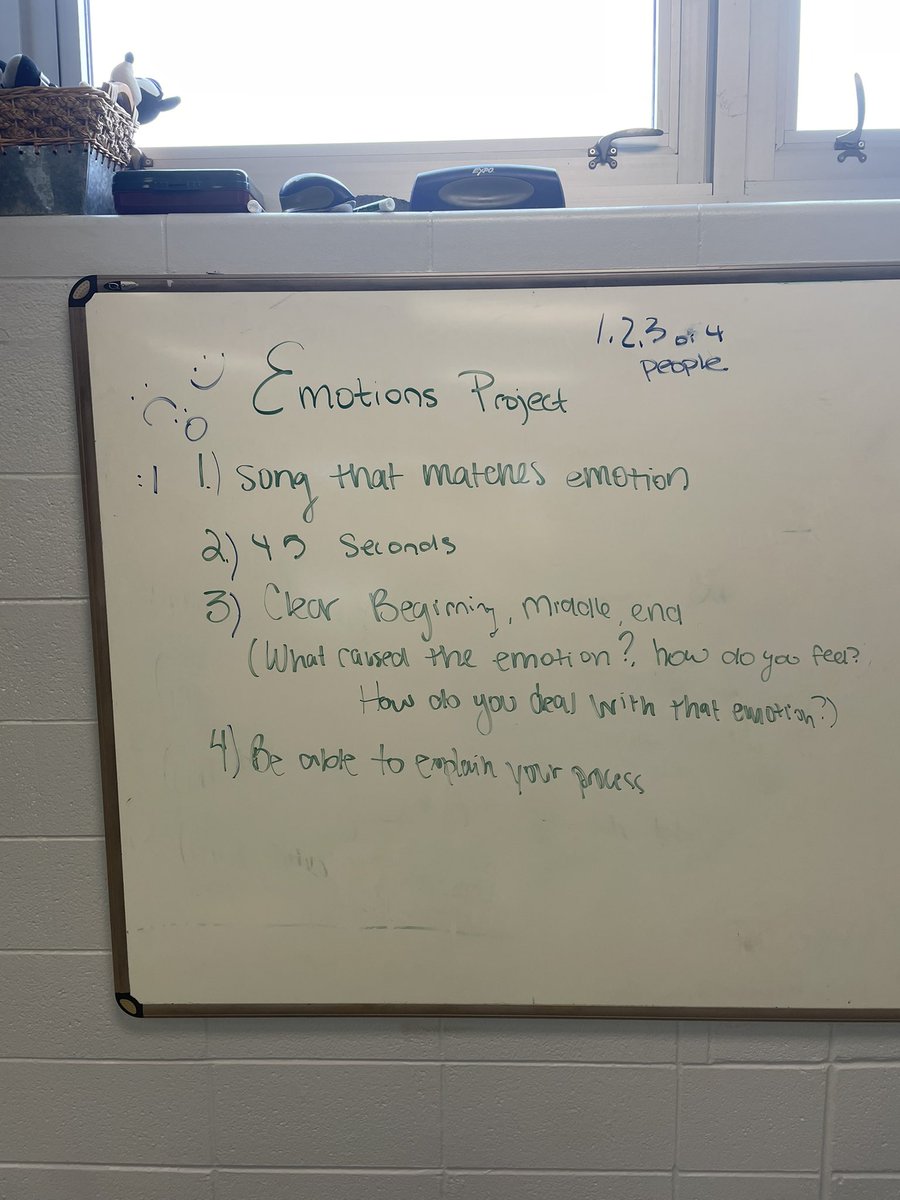 EXPO
1, 2, 3 or 4
people.
Emotions Project
:|
1.) Song that matches emotion
2.) 45 Seconds
3) Clear Beginning, Middle, end
(What caused the emotion?, how do you feel?,
How do you deal with that emotion?)
4) Be able to explain your process